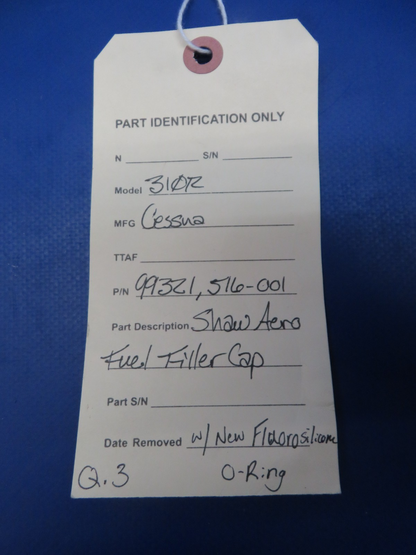 PART IDENTIFICATION ONLY
N S/N
Model 310R
MFG Cessna
TTAF
P/N 99321, 516-001
Part Description Shaw Aero
Fuel Filler Cap
Part S/N
Date Removed w/ New Fluorosilicone
Q.3 O-Ring